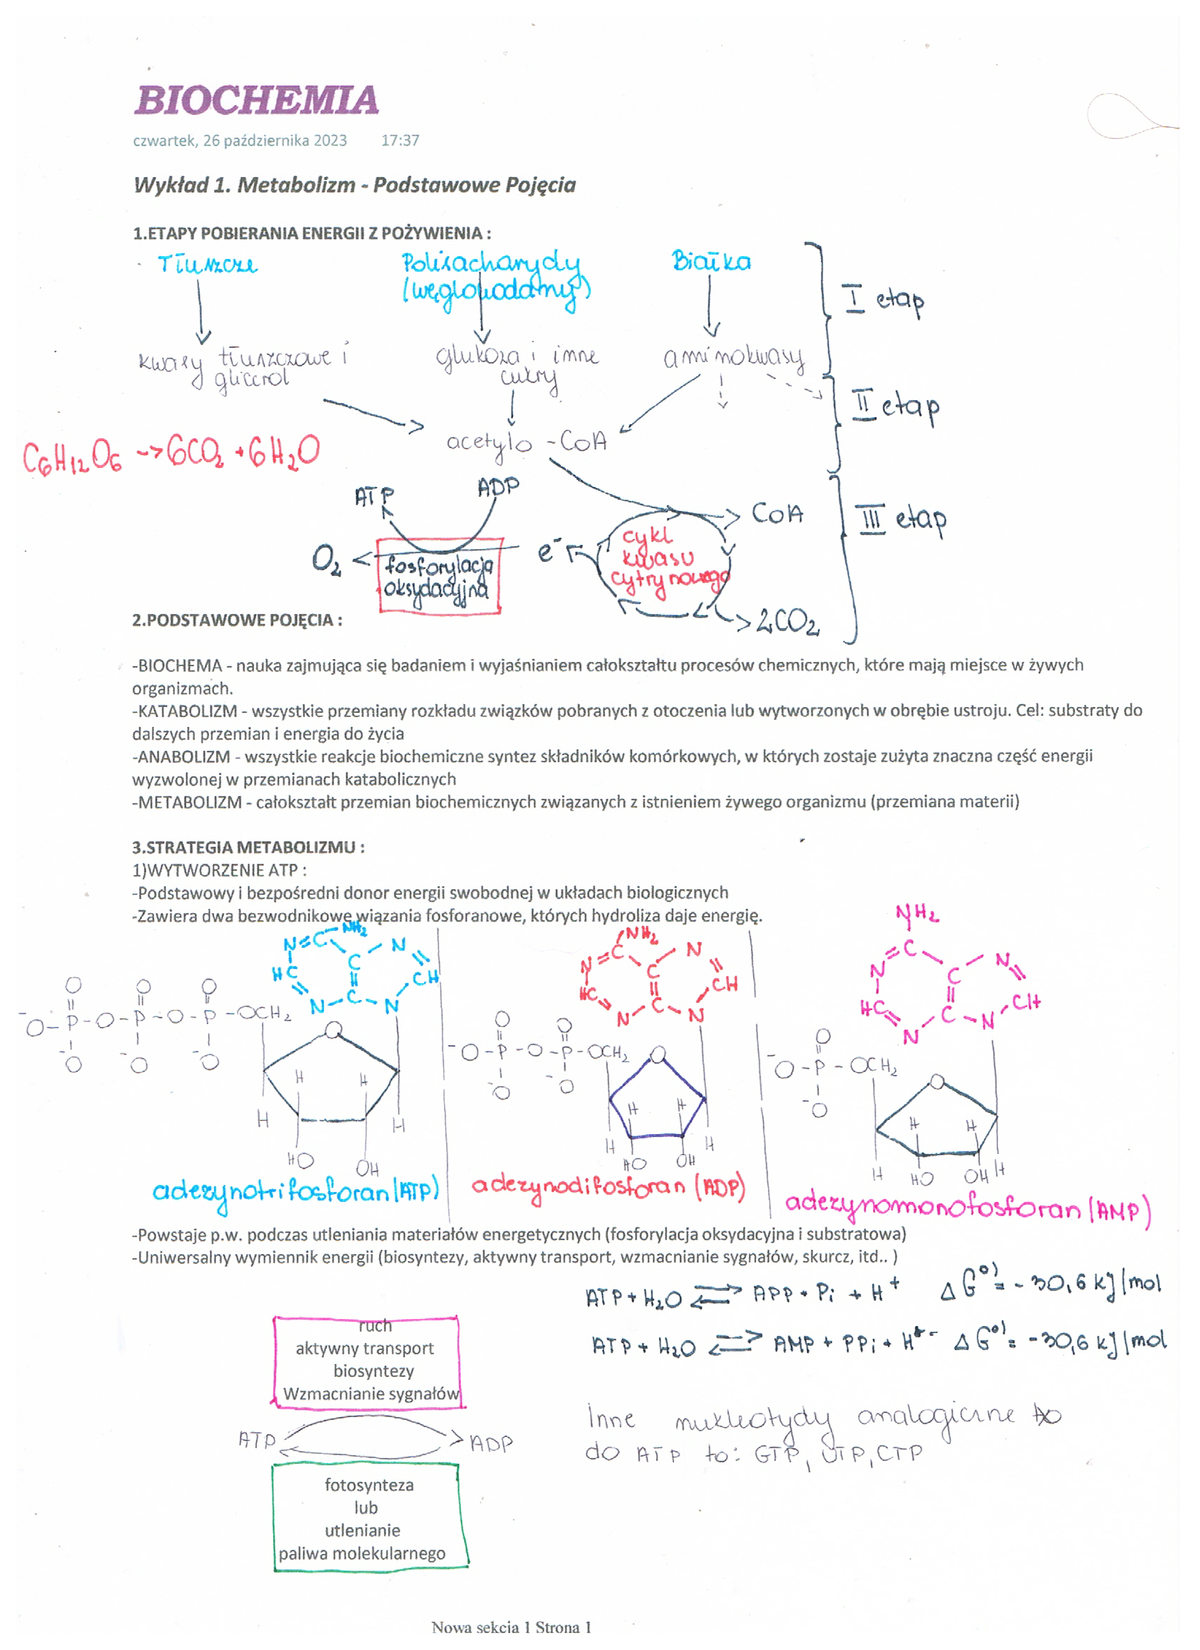 BIOCHEMIA
czwartek, 26 października 2023 17:37
Wykład 1. Metabolizm - Podstawowe Pojęcia
1.ETAPY POBIERANIA ENERGII Z POŻYWIENIA :
Tłuszcze Polisacharydy Białka
(węglowodany)
I etap
kwasy tłuszczowe i glukoza i inne aminokwasy
glicerol cukry
II etap
acetylo - CoA
C6H12O6 -> 6CO2 + 6H2O
ATP ADP
CoA III etap
O2 fosforylacja e- cykl
oksydacyjna kwasu
cytrynowego
2CO2
2.PODSTAWOWE POJĘCIA :
-BIOCHEMA - nauka zajmująca się badaniem i wyjaśnianiem całokształtu procesów chemicznych, które mają miejsce w żywych
organizmach.
-KATABOLIZM - wszystkie przemiany rozkładu związków pobranych z otoczenia lub wytworzonych w obrębie ustroju. Cel: substraty do
dalszych przemian i energia do życia
-ANABOLIZM - wszystkie reakcje biochemiczne syntez składników komórkowych, w których zostaje zużyta znaczna część energii
wyzwolonej w przemianach katabolicznych
-METABOLIZM - całokształt przemian biochemicznych związanych z istnieniem żywego organizmu (przemiana materii)
3.STRATEGIA METABOLIZMU :
1)WYTWORZENIE ATP :
-Podstawowy i bezpośredni donor energii swobodnej w układach biologicznych
-Zawiera dwa bezwodnikowe wiązania fosforanowe, których hydroliza daje energię.
NH2 NH2 NH2
N=C C N CH HC N C N
N=C C N CH HC N C N
N=C C N CH HC N C N
O O O
-O-P-O-P-O-P-OCH2 O
-O -O -O
H H H H
HO OH
O O
-O-P-O-P-OCH2 O
-O -O
H H H H
HO OH
O
-O-P-OCH2 O
-O
H H H H
HO OH
adezynotrifosforan (ATP) adezynodifosforan (ADP) adezynomonofosforan (AMP)
-Powstaje p.w. podczas utleniania materiałów energetycznych (fosforylacja oksydacyjna i substratowa)
-Uniwersalny wymiennik energii (biosyntezy, aktywny transport, wzmacnianie sygnałów, skurcz, itd.. )
ATP + H2O ⇌ APP + Pi + H+ ΔG°' = -30,6 kJ/mol
ATP + H2O ⇌ AMP + PPi + H+ ΔG°' = -30,6 kJ/mol
ruch
aktywny transport
biosyntezy
Wzmacnianie sygnałów
ATP ADP
fotosynteza
lub
utlenianie
paliwa molekularnego
Inne nukleotydy analogiczne
do ATP to: GTP, UTP, CTP
Nowa sekcja 1 Strona 1